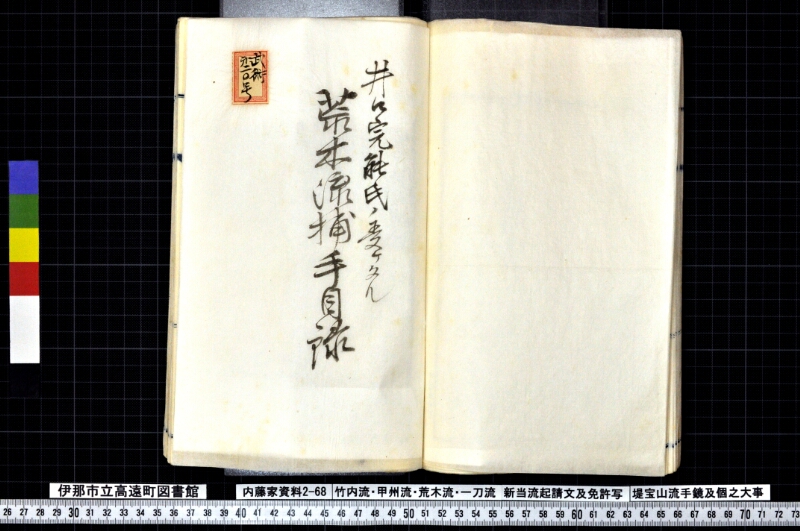 井口完能氏ノ受ケタル
荒木流捕手目録
武術
伊那市立高遠町図書館
内藤家資料2-68
竹内流・甲州流・荒木流・一刀流 新当流起請文及免許写
堤宝山流手鏡及個之大事
26 27 28 29 30 31 32 33 34 35 36 37 38 39 40 41 42 43 44 45 46 47 48 49 50 51 52 53 54 55 56 57 58 59 60 61 62 63 64 65 66 67 68 69 70 71 72 73